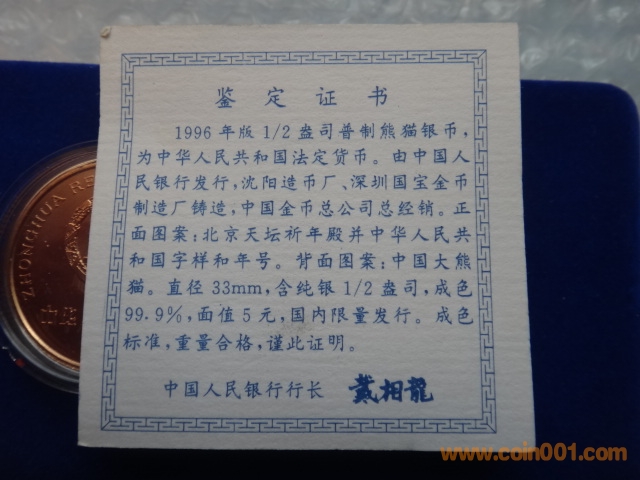 鉴定证书
1996年版1/2盎司普制熊猫银币,
为中华人民共和国法定货币。由中国人
民银行发行,沈阳造币厂、深圳国宝金币
制造厂铸造,中国金币总公司总经销。正
面图案:北京天坛祈年殿并中华人民共
和国字样和年号。背面图案:中国大熊
猫。直径33mm,含纯银1/2盎司,成色
99.9%,面值5元,国内限量发行。成色
标准,重量合格,谨此证明。
中国人民银行行长 戴相龍
ZHONGHUA RE
www.coin001.com